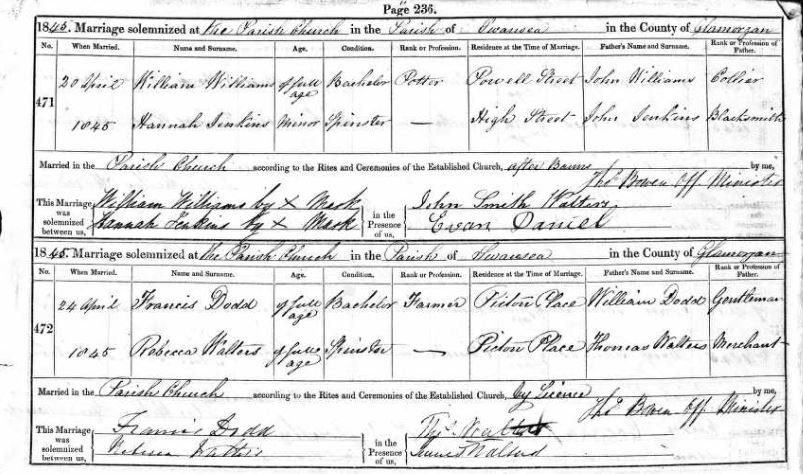 Page 236.
1845. Marriage solemnized at the Parish Church in the Parish of Swansea in the County of Glamorgan
No. When Married. Name and Surname. Age. Condition. Rank or Profession. Residence at the Time of Marriage. Father's Name and Surname. Rank or Profession of Father.
471 20 April William Williams of full age Bachelor Potter Powell Street John Williams Collier
1845 Hannah Jenkins Minor Spinster — High Street John Jenkins Blacksmith
Married in the Parish Church according to the Rites and Ceremonies of the Established Church, after Banns by me,
Thos Bowen Off Minister
This Marriage was solemnized between us, William Williams by X Mark in the Presence of us, John Smith Walters
Hannah Jenkins by X Mark Evan Daniel
1845. Marriage solemnized at the Parish Church in the Parish of Swansea in the County of Glamorgan
No. When Married. Name and Surname. Age. Condition. Rank or Profession. Residence at the Time of Marriage. Father's Name and Surname. Rank or Profession of Father.
472 24 April Francis Dodd of full age Bachelor Farmer Picton Place William Dodd Gentleman
1845 Rebecca Walters of full age Spinster — Picton Place Thomas Walters Merchant
Married in the Parish Church according to the Rites and Ceremonies of the Established Church, by Licence by me,
Thos Bowen Off Minister
This Marriage was solemnized between us, Francis Dodd in the Presence of us,
Rebecca Walters